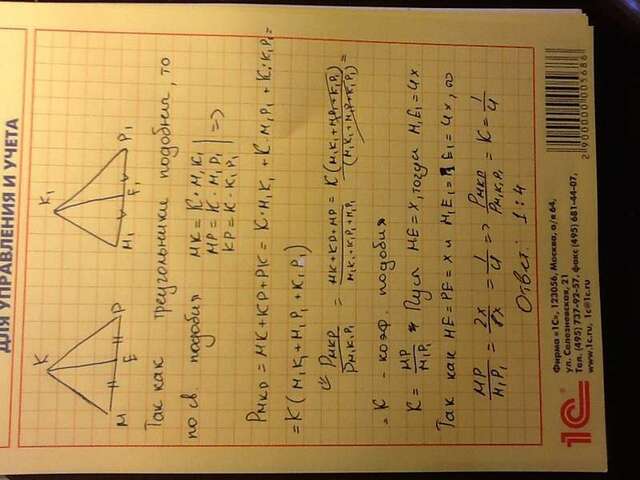 ДЛЯ УПРАВЛЕНИЯ И УЧЕТА
K
M
E
P
K₁
M₁
E₁
P₁
Так как треугольники подобния, то
по св. подобия
MK = K · M₁K₁
MP = K · M₁P₁
KP = K · K₁P₁
=>
PMKP = MK + KP + PK = K · M₁K₁ + K · M₁P₁ + K · K₁P₁ =
= K (M₁K₁ + M₁P₁ + K₁P₁)
PMKP / PM₁K₁P₁ = MK + KP + MP / M₁K₁ + K₁P₁ + M₁P₁ = K (M₁K₁ + M₁P₁ + K₁P₁) / (M₁K₁ + M₁P₁ + K₁P₁) =
= K - коэф. подобия
K = MP / M₁P₁ Пусть ME = x, тогда M₁E₁ = 4x
Так как ME = PE = x и M₁E₁ = P₁E₁ = 4x, то
MP / M₁P₁ = 2x / 8x = 1/4 => PMKP / PM₁K₁P₁ = K = 1/4
Ответ: 1:4
1С
Фирма «1С», 123056, Москва, а/я 64,
ул. Селезневская, 21
Тел. (495) 737-92-57, факс (495) 681-44-07,
www.1c.ru, 1c@1c.ru
2900000005686